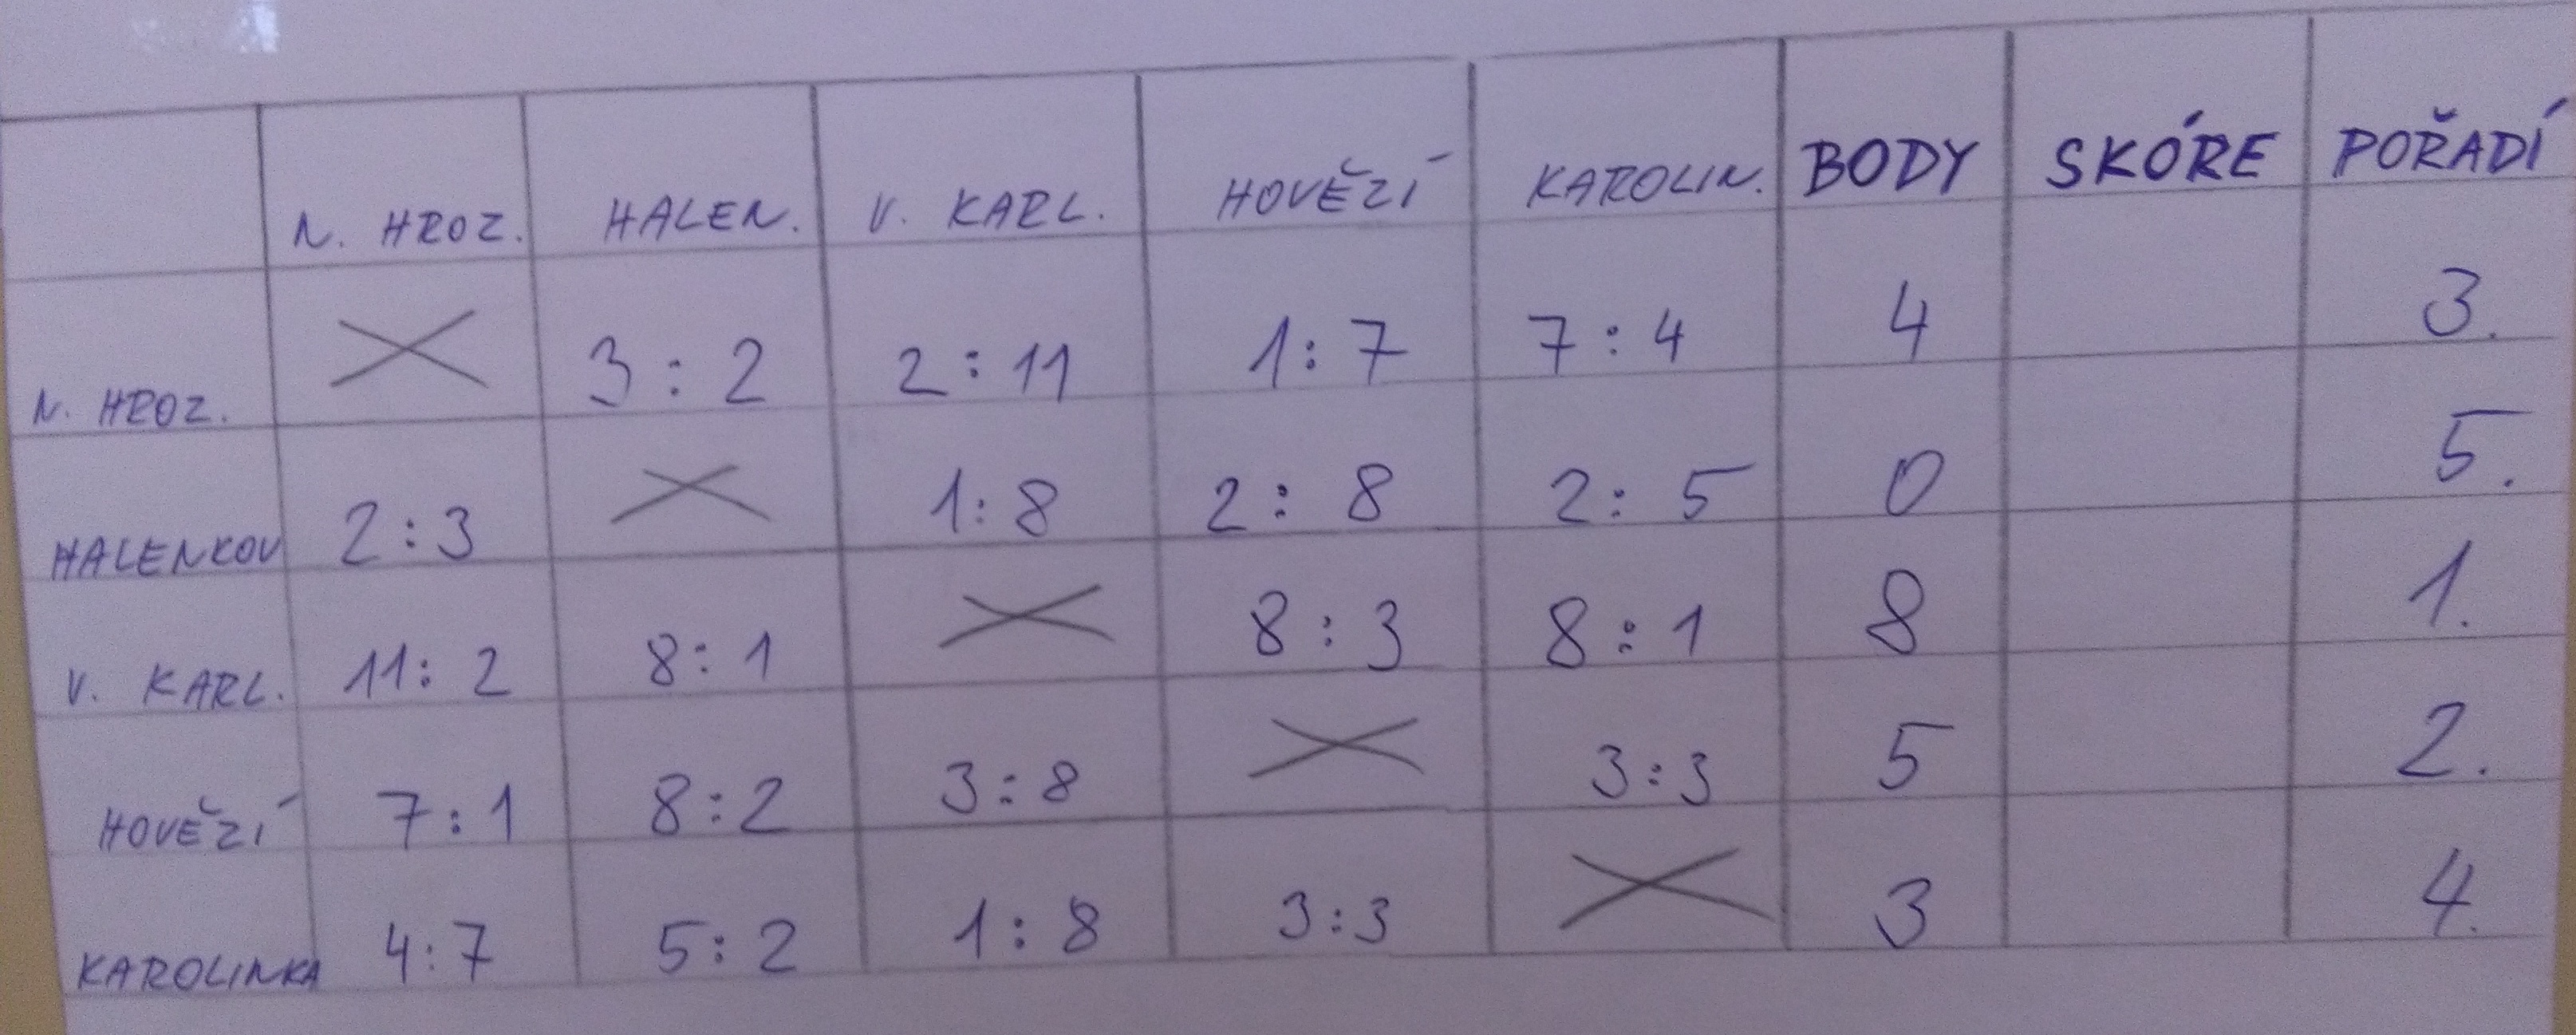 N. HROZ. HALEN. V. KARL. HOVĚZÍ KAROLIN. BODY SKÓRE POŘADÍ
N. HROZ. 3:2 2:11 1:7 7:4 4 3.
HALENKOV 2:3 1:8 2:8 2:5 0 5.
V. KARL. 11:2 8:1 8:3 8:1 8 1.
HOVĚZÍ 7:1 8:2 3:8 3:3 5 2.
KAROLINKA 4:7 5:2 1:8 3:3 3 4.